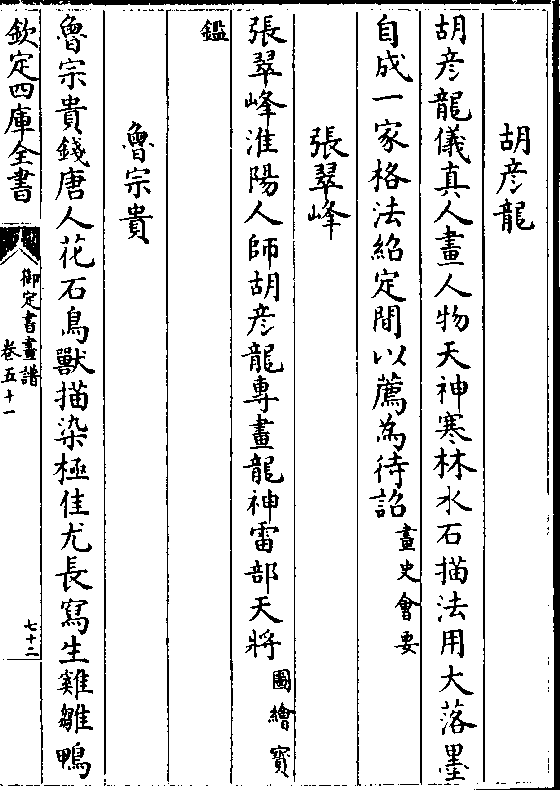 胡彥龍
胡彥龍儀真人畫人物天神寒林水石描法用大落墨
自成一家格法紹定間以薦為待詔畫史會要
張翠峰
張翠峰淮陽人師胡彥龍專畫龍神雷部天將圖繪寳
鑑
魯宗貴
魯宗貴錢唐人花石鳥獸描染極佳尤長寫生雞雛鴨
欽定四庫全書
御定書畫譜
卷五十一
七十二